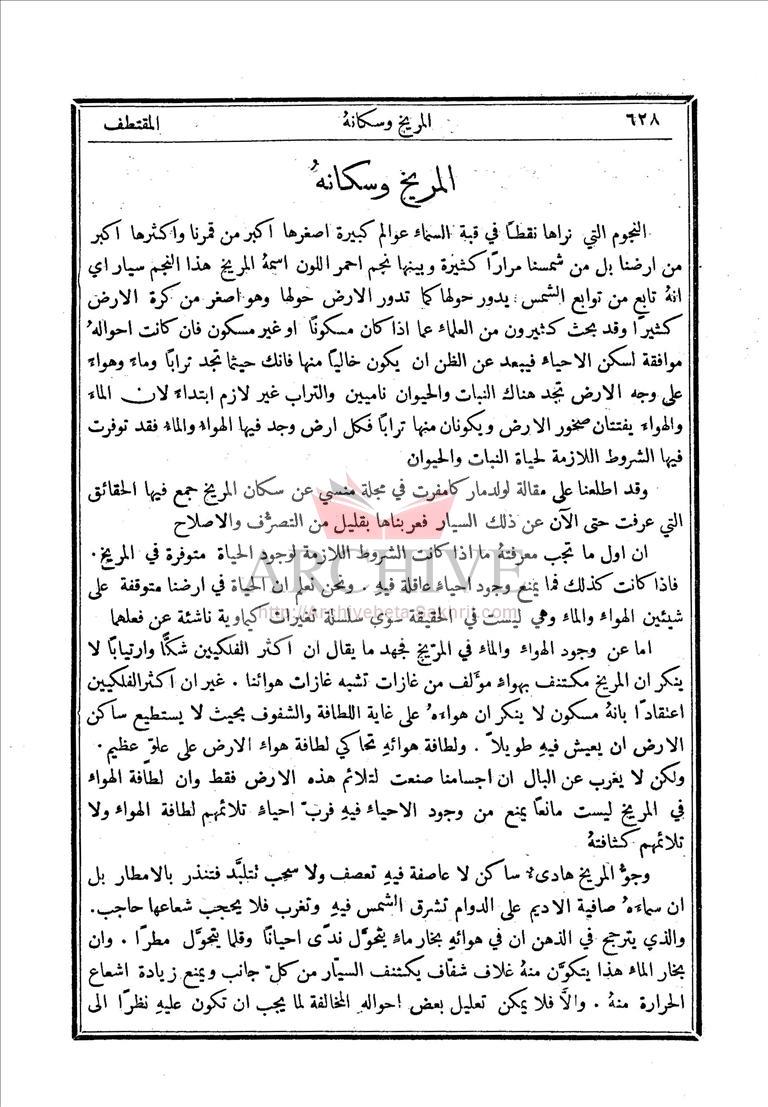 ٦٢٨ المريخ وسكانهُ المقتطف
المريخ وسكانهُ
النجوم التي نراها نقطاً في قبة السماء عوالم كبيرة اصغرها اكبر من قمرنا واكثرها اكبر
من ارضنا بل من شمسنا مراراً كثيرة وبينها نجم احمر اللون اسمهُ المريخ هذا النجم سيار اي
انهُ تابع من توابع الشمس يدور حولها كما تدور الارض حولها وهو اصغر من كرة الارض
كثيراً وقد بحث كثيرون من العلماء عما اذا كان مسكوناً او غير مسكون فان كانت احوالهُ
موافقة لسكن الاحياء فيبعد عن الظن ان يكون خالياً منها فانك حيثما تجد تراباً وماءً وهواءً
على وجه الارض تجد هناك النبات والحيوان ناميين والتراب غير لازم ابتداءً لان الماء
والهواء يفتتان صخور الارض ويكونان منها تراباً فكل ارض وجد فيها الهواء والماء فقد توفرت
فيها الشروط اللازمة لحياة النبات والحيوان
وقد اطلعنا على مقالة لولدمار كامفرت في مجلة منسي عن سكان المريخ جمع فيها الحقائق
التي عرفت حتى الآن عن ذلك السيار فعربناها بقليل من التصرُّف والاصلاح
ان اول ما تجب معرفتهُ ما اذا كانت الشروط اللازمة لوجود الحياة متوفرة في المريخ .
فاذا كانت كذلك فما يمنع وجود احياء عاقلة فيهِ . ونحن نعلم ان الحياة في ارضنا متوقفة على
شيئين الهواء والماء وهي ليست في الحقيقة سوى سلسلة تغيرات كيماوية ناشئة عن فعلهما
اما عن وجود الهواء والماء في المريخ فجهد ما يقال ان اكثر الفلكيين شكًّا وارتياباً لا
ينكر ان المريخ مكتنف بهواء مؤلف من غازات تشبه غازات هوائنا . غير ان اكثر الفلكيين
اعتقاداً بانهُ مسكون لا ينكر ان هواءهُ على غاية اللطافة والشفوف بحيث لا يستطيع ساكن
الارض ان يعيش فيهِ طويلاً . ولطافة هوائهِ تحاكي لطافة هواء الارض على علوّ عظيم .
ولكن لا يغرب عن البال ان اجسامنا صنعت لتلائم هذه الارض فقط وان لطافة الهواء
في المريخ ليست مانعاً يمنع من وجود الاحياء فيهِ فربّ احياءٍ تلائمهم لطافة الهواء ولا
تلائمهم كثافتهُ
وجوُّ المريخ هادئ ساكن لا عاصفة فيهِ تعصف ولا سحب تتلبَّد فتنذر بالامطار بل
ان سماءهُ صافية الاديم على الدوام تشرق الشمس فيهِ وتغرب فلا يحجب شعاعها حاجب .
والذي يترجح في الذهن ان في هوائهِ بخار ماءٍ يتحوَّل ندًى احياناً وقلما يتحوَّل مطراً . وان
بخار الماء هذا يتكوَّن منهُ غلاف شفَّاف يكتنف السيّار من كلّ جانب ويمنع زيادة اشعاع
الحرارة منهُ . والاَّ فلا يمكن تعليل بعض احواله المخالفة لما يجب ان تكون عليهِ نظراً الى
ARCHIVE
http://Archivebeta.Sakhrit.com